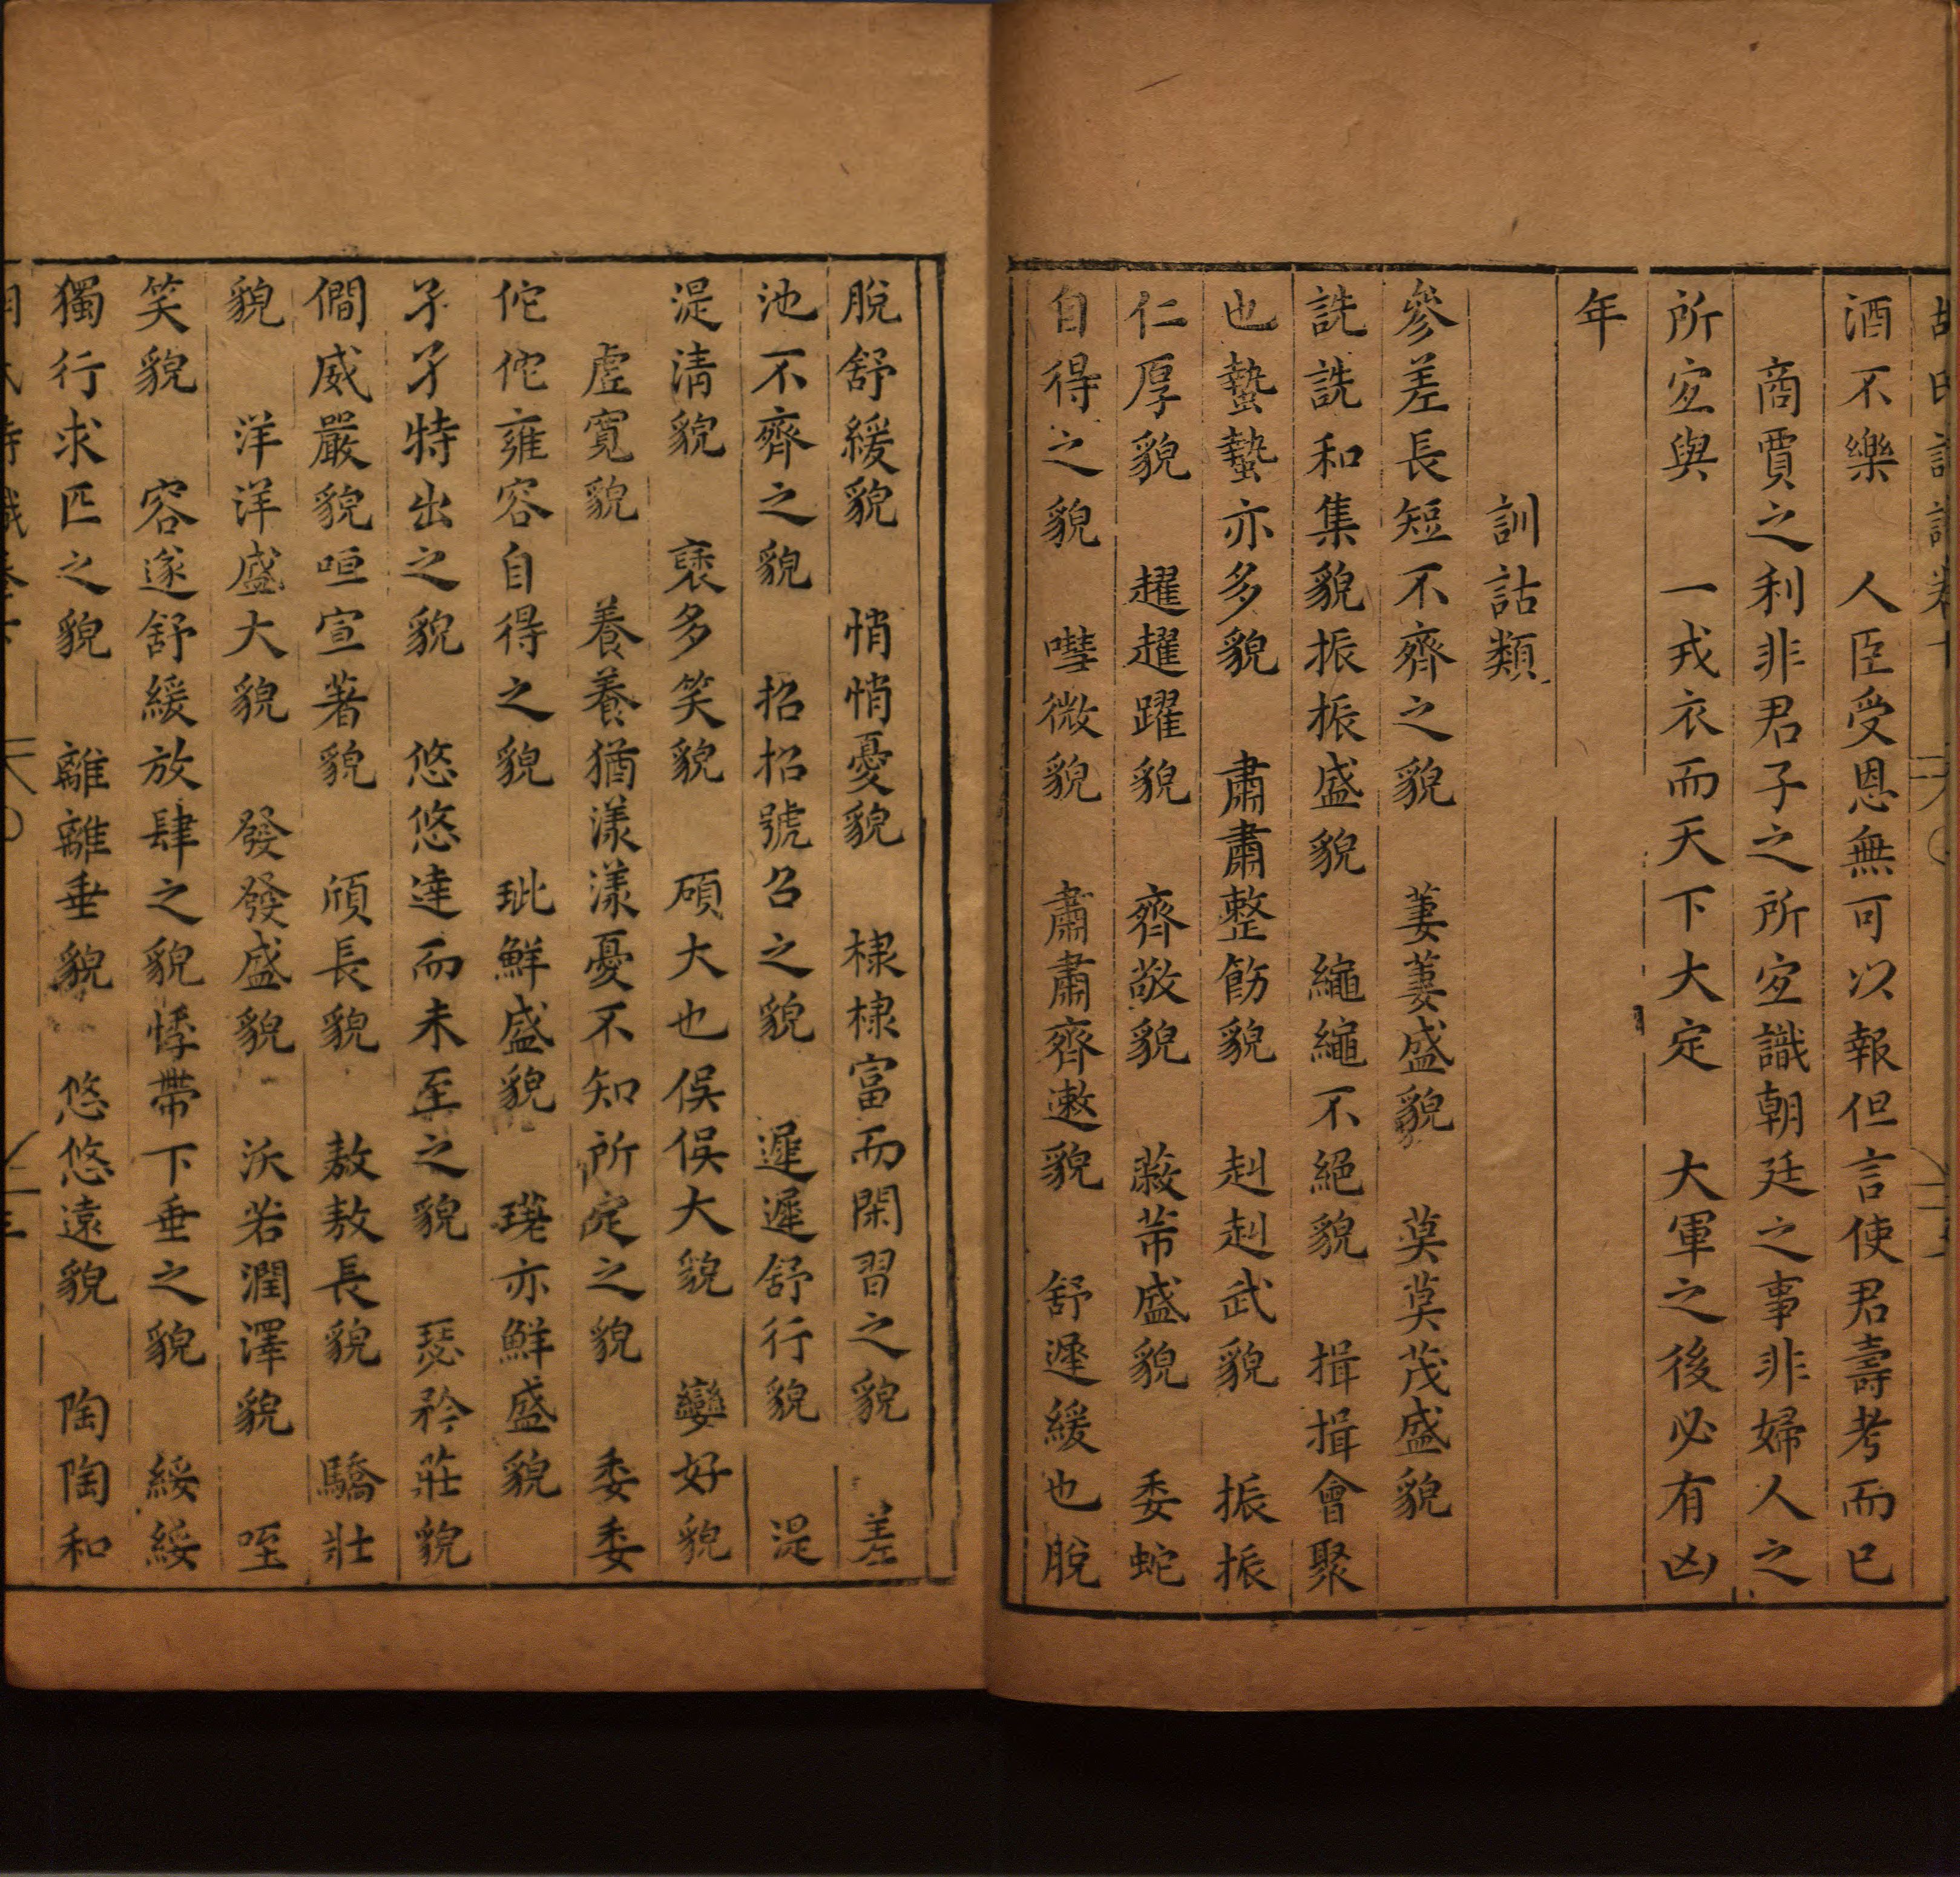 酒不樂　人臣受恩無可以報但言使君壽考而已
商賈之利非君子之所宜識朝廷之事非婦人之
所宜與　一戎衣而天下大定　大軍之後必有凶
年
訓詁類
參差長短不齊之貌　萋萋盛貌　莫莫茂盛貌
詵詵和集貌振振盛貌　繩繩不絕貌　揖揖會聚
也蟄蟄亦多貌　肅肅整飭貌　赳赳武貌　振振
仁厚貌　趯趯躍貌　齊敬貌　蔽芾盛貌　委蛇
自得之貌　嘒微貌　肅肅齊遬貌　舒遲緩也脫
脫舒緩貌　悄悄憂貌　棣棣富而閑習之貌　差
池不齊之貌　招招號召之貌　遲遲舒行貌　湜
湜清貌　褎多笑貌　碩大也俁俁大貌　孌好貌
虛寬貌　養養猶漾漾憂不知所定之貌　委委
佗佗雍容自得之貌　玼鮮盛貌　瑳亦鮮盛貌
孑孑特出之貌　悠悠達而未至之貌　瑟矜莊貌
僩威嚴貌咺宣著貌　頎長貌　敖敖長貌　驕壯
貌　洋洋盛大貌　發發盛貌　沃若潤澤貌　咥
笑貌　容遂舒緩放肆之貌悸帶下垂之貌　綏綏
獨行求匹之貌　離離垂貌　悠悠遠貌　陶陶和